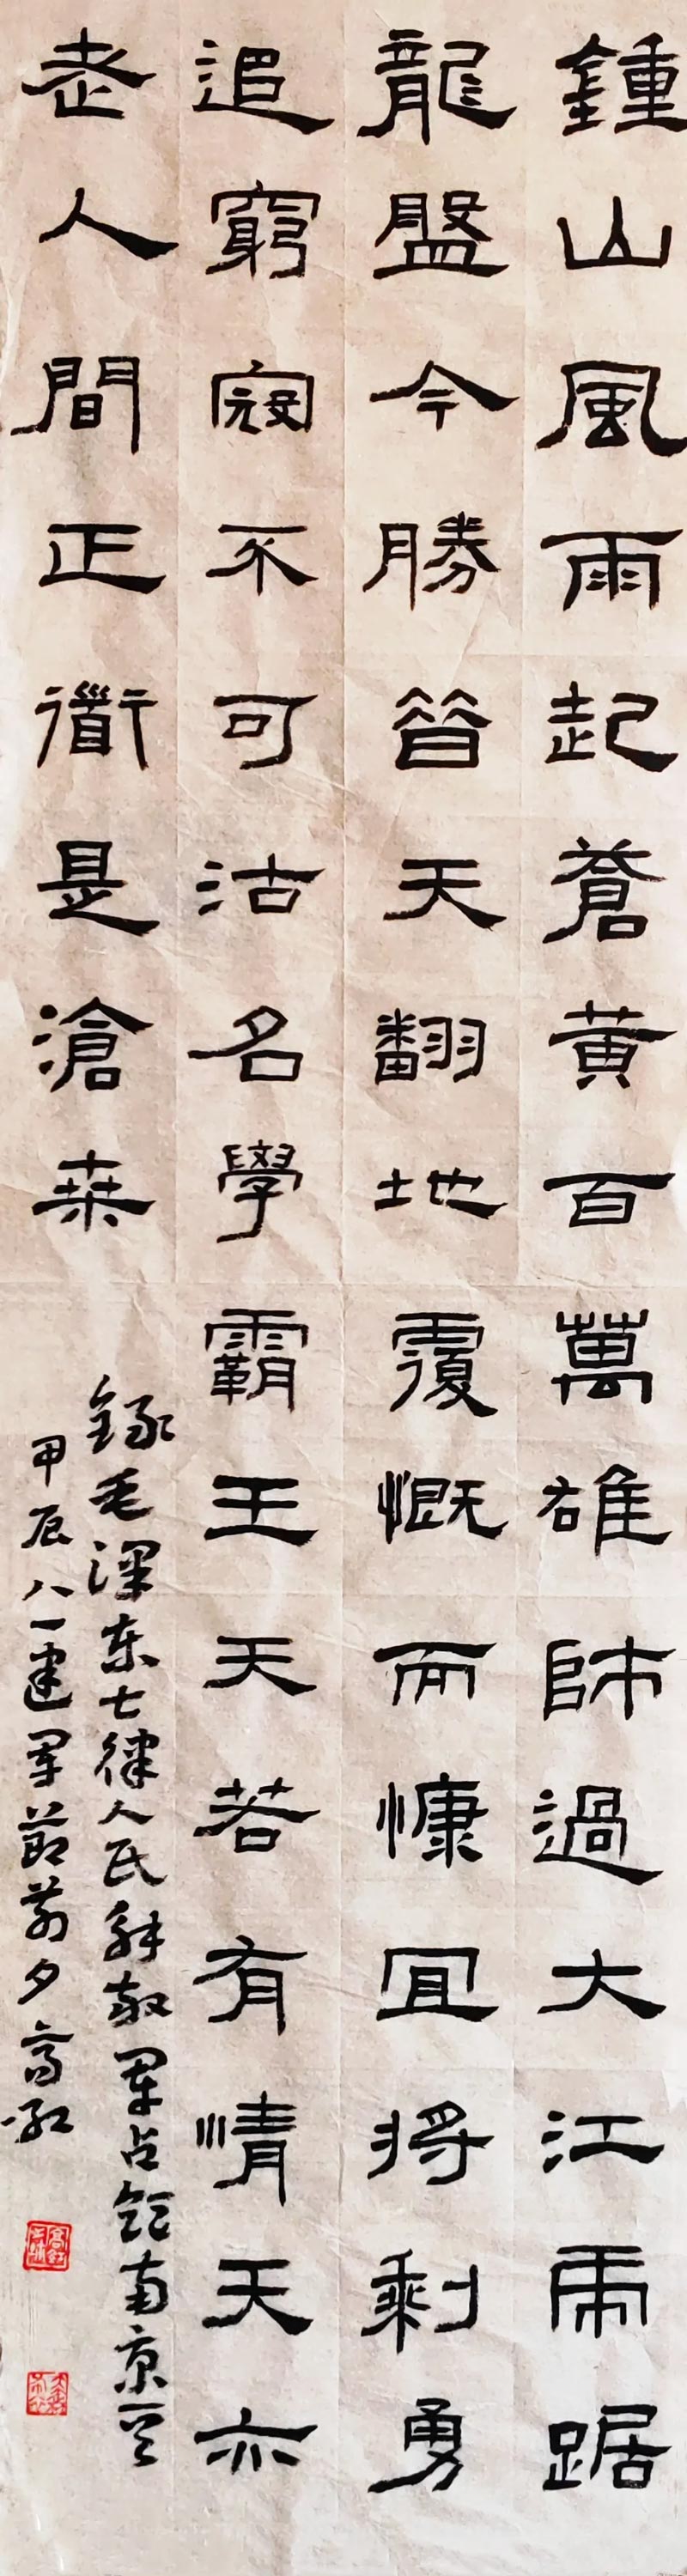 鍾山風雨起蒼黄百萬雄師過大江虎踞
龍盤今勝昔天翻地覆慨而慷宜將剩勇
追窮寇不可沽名學霸王天若有情天亦
老人間正衜是滄桑
録毛澤东七律人民解放軍占領南京一首
甲辰八一建軍節前夕高紅